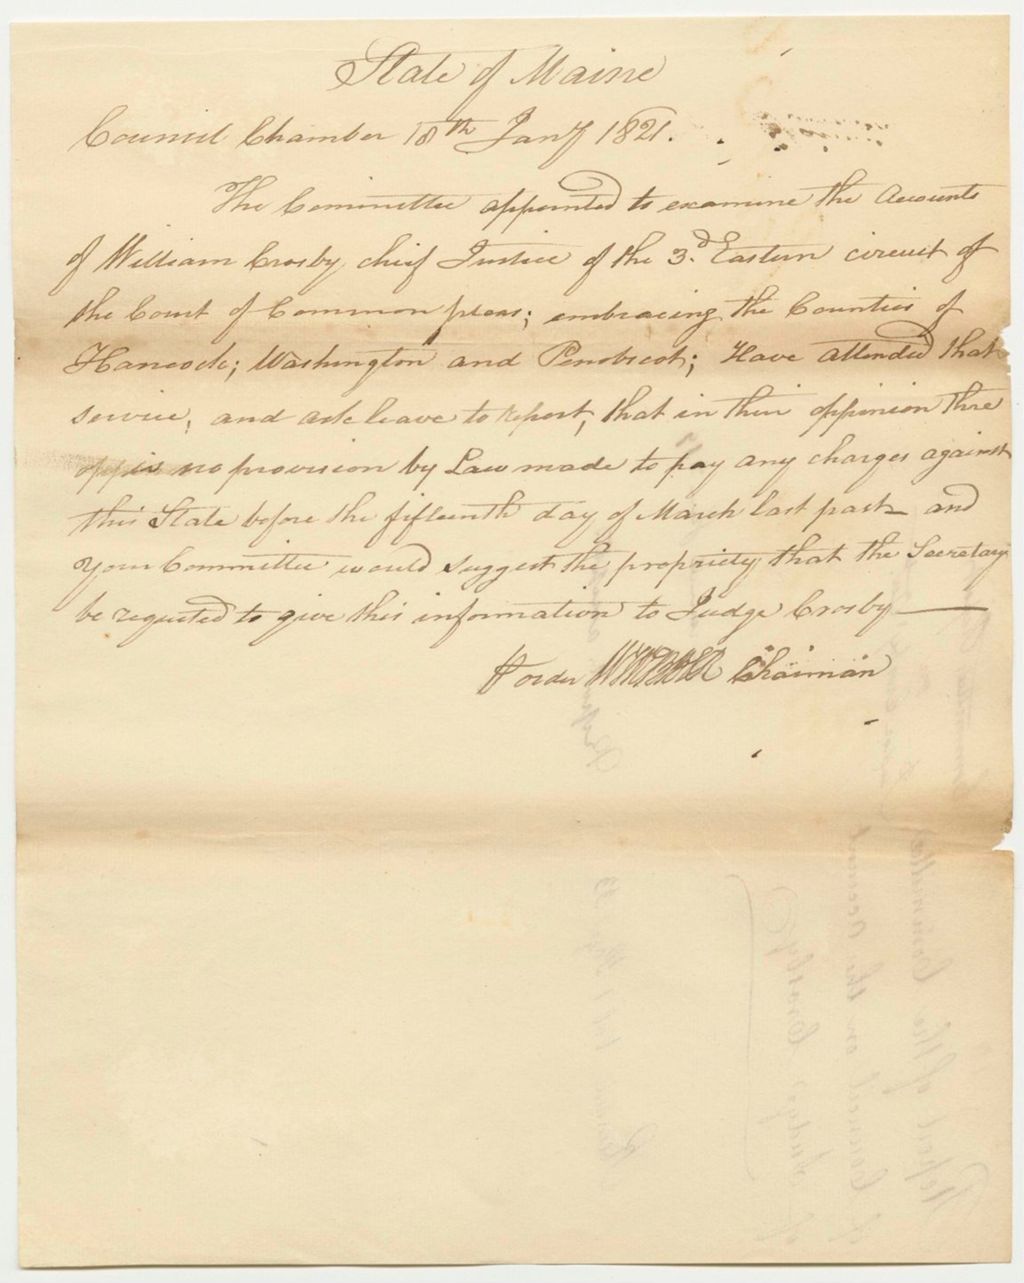 State of Maine
Council Chamber 18th Jany 1821.
The Committee appointed to examine the Accounts
of William Crosby chief Justice of the 3.d Eastern circuit of
the Court of Common pleas; embracing the Counties of
Hancock; Washington and Penobscot; Have attended that
service, and ask leave to report, that in their oppinion thre
is no provision by Law made to pay any charges against
this State before the fifteenth day of March last past and
your Committee would suggest the propriety that the Secretary
be requested to give this information to Judge Crosby
order Chairman